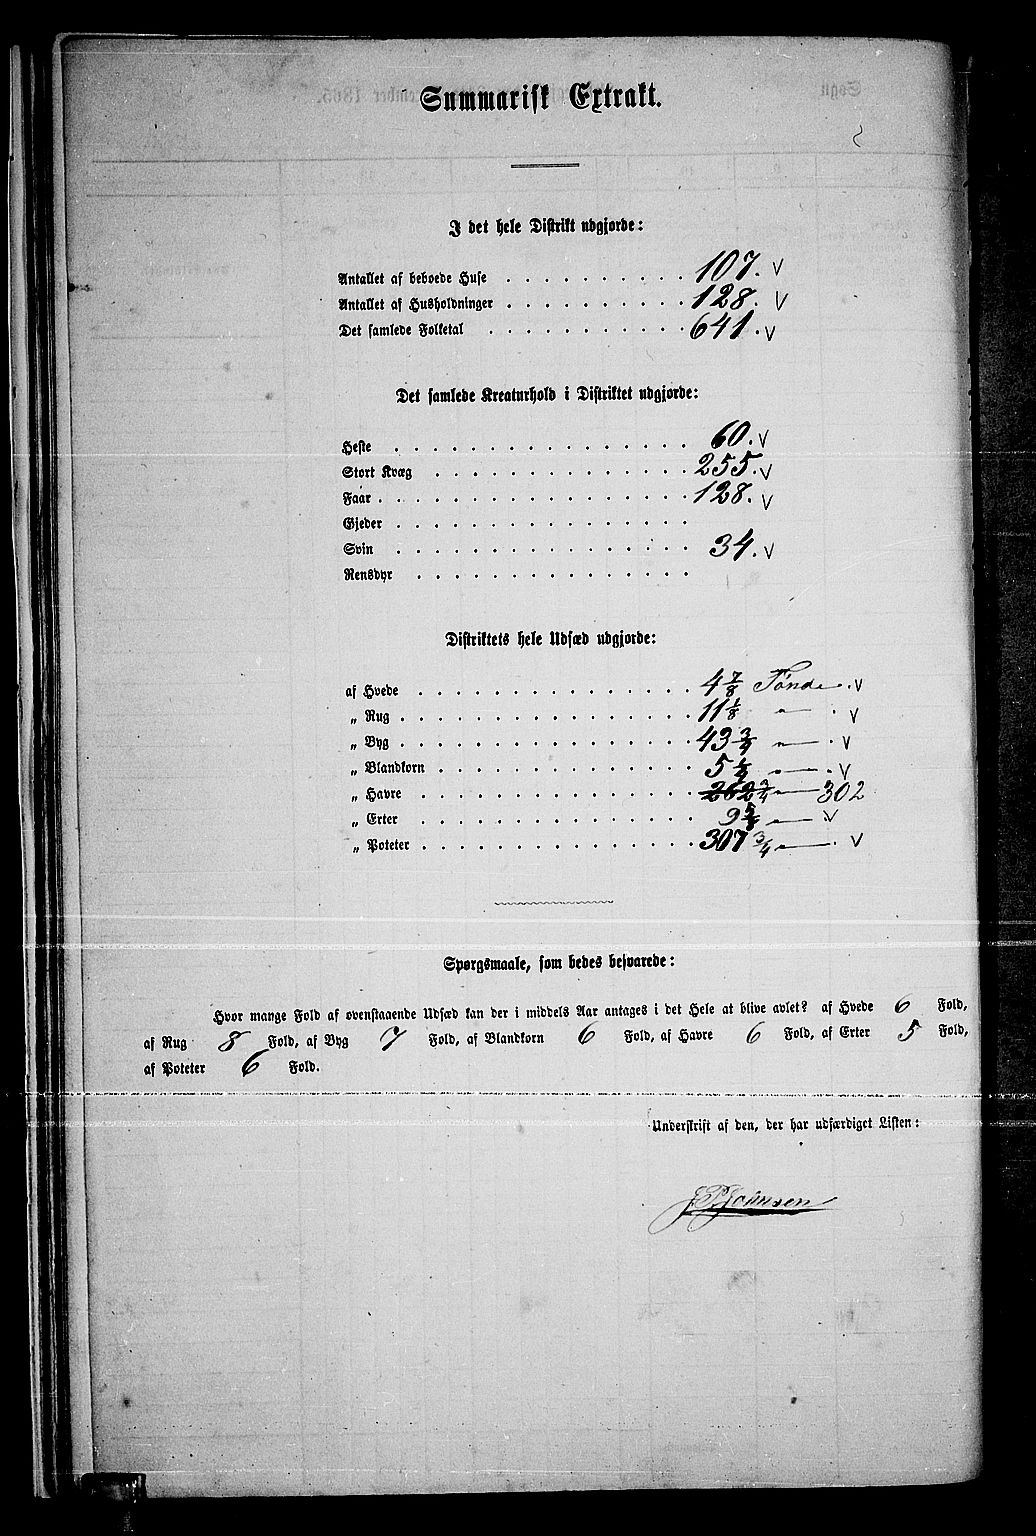 Summarisk Extrakt.
I det hele Distrikt udgjorde:
Antallet af beboede Huse . . . . . . . . . . 107. v
Antallet af Husholdninger . . . . . . . . . . 128. v
Det samlede Folketal . . . . . . . . . . . 641. v
Det samlede Kreaturhold i Distriktet udgjorde:
Heste . . . . . . . . . . . . . . . 60. v
Stort Kvæg . . . . . . . . . . . . . 255. v
Faar . . . . . . . . . . . . . . . 128. v
Gjeder . . . . . . . . . . . . . . .
Svin . . . . . . . . . . . . . . . 34. v
Rensdyr . . . . . . . . . . . . . .
Distriktets hele Udsæd udgjorde:
af Hvede . . . . . . . . . . . . . . 4 7/8 Tønder. v
„ Rug . . . . . . . . . . . . . . . 11 1/8 — " — . v
„ Byg . . . . . . . . . . . . . . . 43 3/4 — " — . v
„ Blandkorn . . . . . . . . . . . . . 5 1/4 — " — . v
„ Havre . . . . . . . . . . . . . . 262 3/4 — " — 302
„ Erter . . . . . . . . . . . . . . 9 — " — v
„ Poteter . . . . . . . . . . . . . . 307 3/4 — " — . v
Spørgsmaale, som bedes besvarede:
Hvor mange Fold af ovenstaaende Udsæd kan der i middels Aar antages i det Hele at blive avlet? af Hvede 6 Fold,
af Rug 8 Fold, af Byg 7 Fold, af Blandkorn 6 Fold, af Havre 6 Fold, af Erter 5 Fold,
af Poteter 6 Fold.
Underskrift af den, der har udfærdiget Listen: